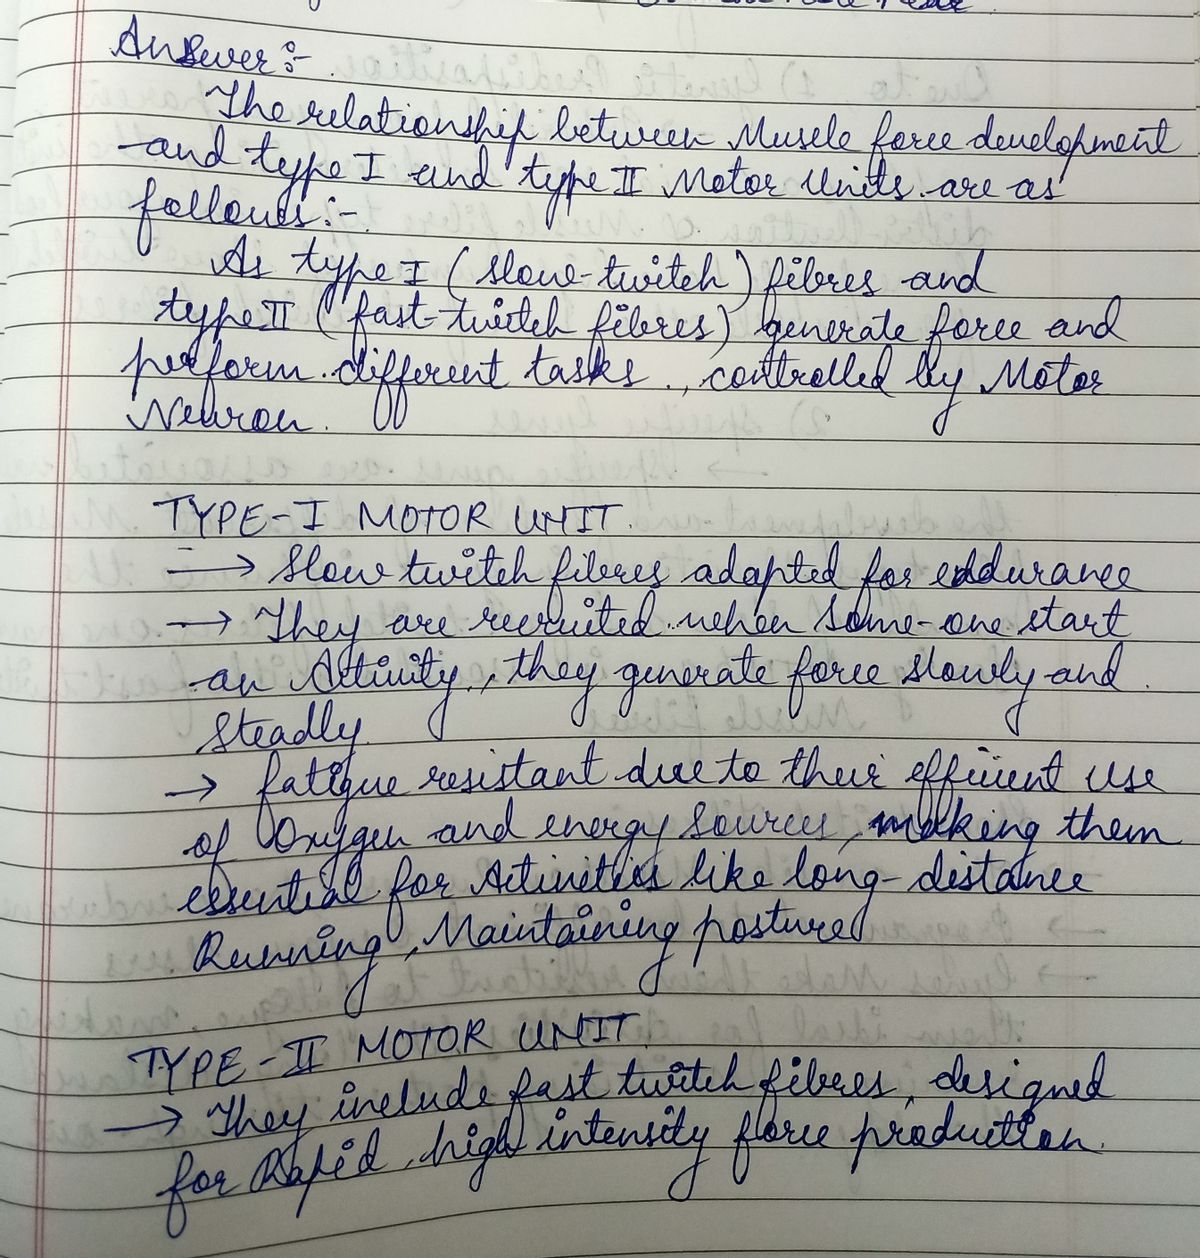 Answer :-
The relationship between Muscle force development
and type I and type II Motor Units are as
follows :-
As type I (slow-twitch) fibres and
type II (fast-twitch fibres) generate force and
perform different tasks, controlled by Motor
Neuron.
TYPE-I MOTOR UNIT.
→ Slow twitch fibres adapted for endurance
→ They are recruited when some-one start
an Activity, they generate force slowly and
steadly.
→ fatigue resistant due to their efficient use
of Oxygen and energy sources, making them
essential for Activities like long-distance
Running, Maintaining posture
TYPE-II MOTOR UNIT.
→ They include fast twitch fibres, designed
for Rapid, high intensity force production.